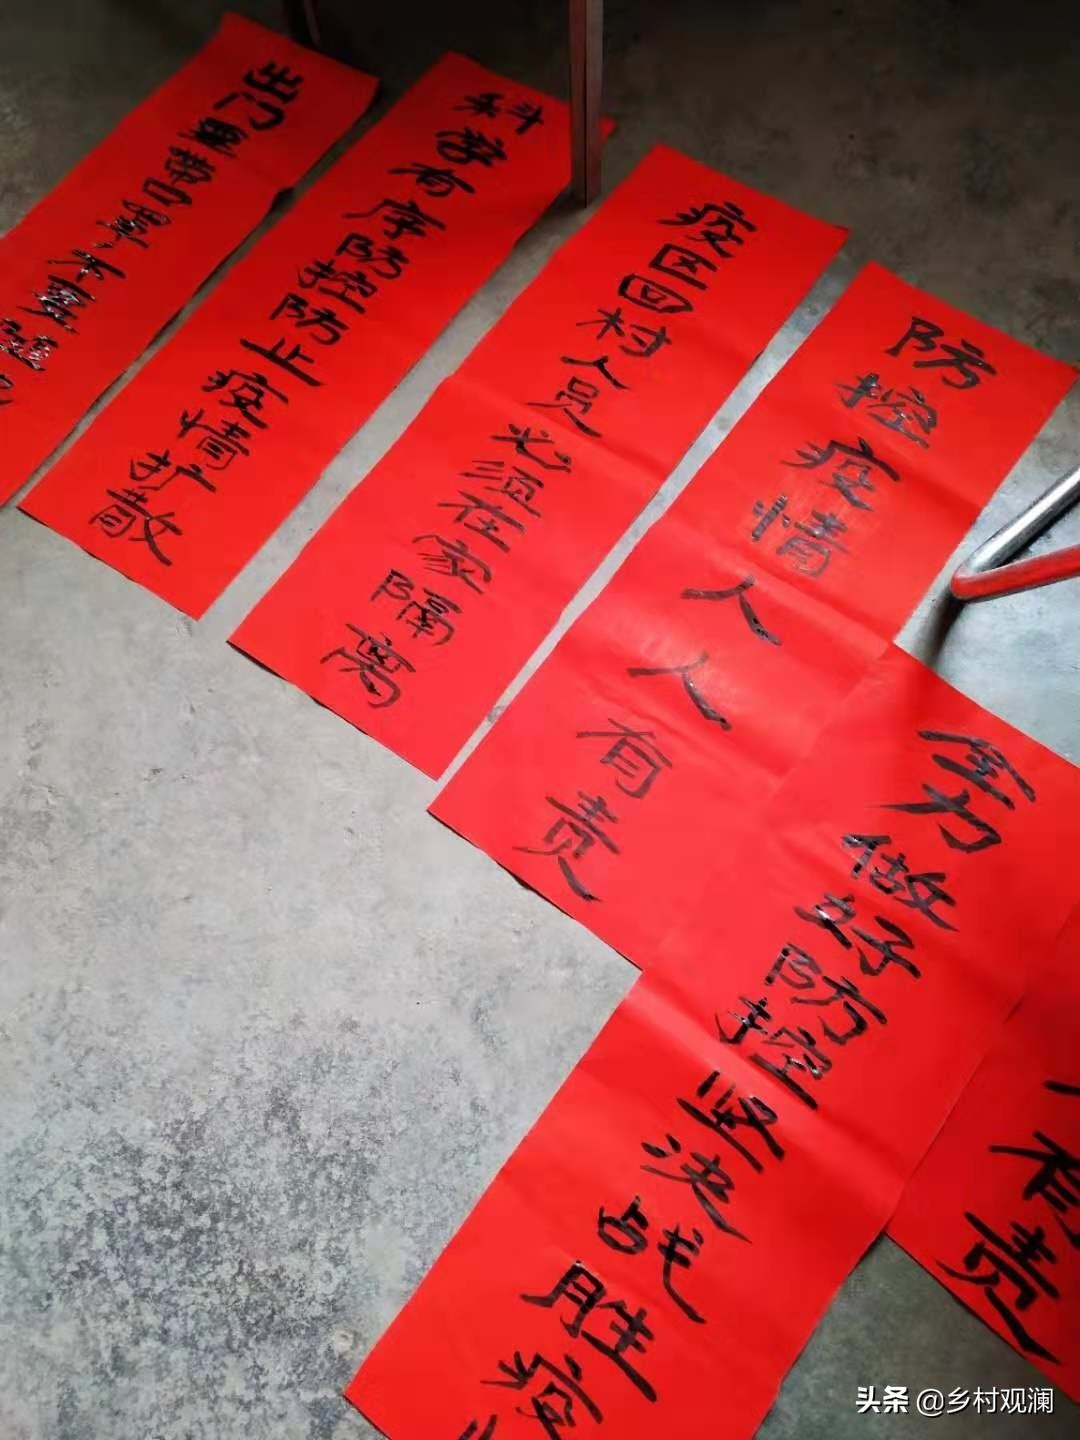 出门要带口罩不要
科学有序防控防止疫情扩散
疫区回村人员必须在家隔离
防控疫情人人有责
全力做好防控坚决战胜疫
有责
头条 @乡村观澜